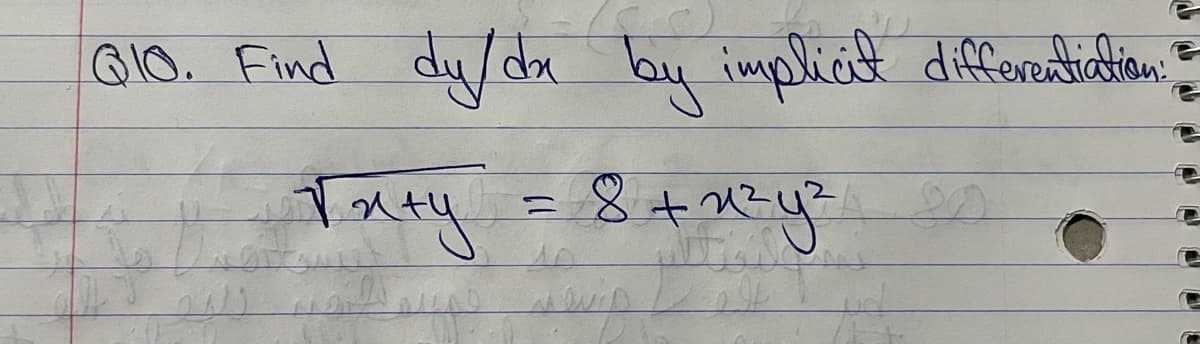 Q10. Find dy/dx by implicit differentiation:
√x+y = 8 + x²y²